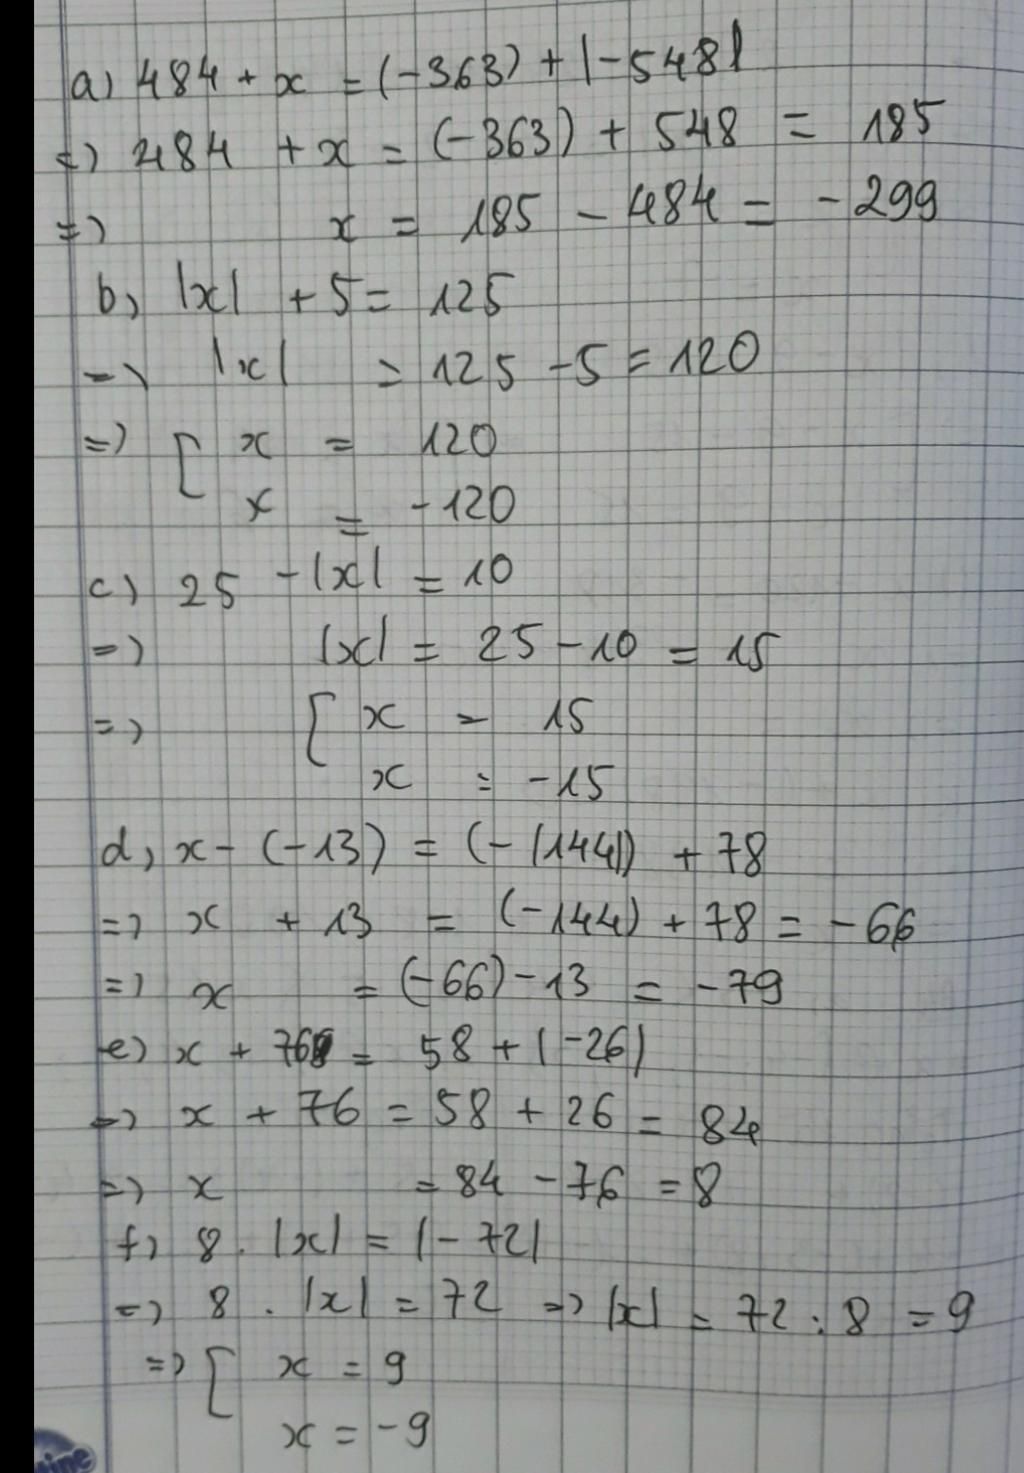 a) 484 + x = (-363) + |-548|
=) 484 + x = (-363) + 548 = 185
=) x = 185 - 484 = -299
b) |x| + 5 = 125
=) |x| = 125 - 5 = 120
=) [ x = 120
x = -120
c) 25 - |x| = 10
=) |x| = 25 - 10 = 15
=) [ x = 15
x = -15
d) x - (-13) = (-|144|) + 78
=) x + 13 = (-144) + 78 = -66
=) x = (-66) - 13 = -79
e) x + 76 = 58 + |-26|
=) x + 76 = 58 + 26 = 84
=) x = 84 - 76 = 8
f) 8 . |x| = |-72|
=) 8 . |x| = 72 =) |x| = 72 : 8 = 9
=) [ x = 9
x = -9